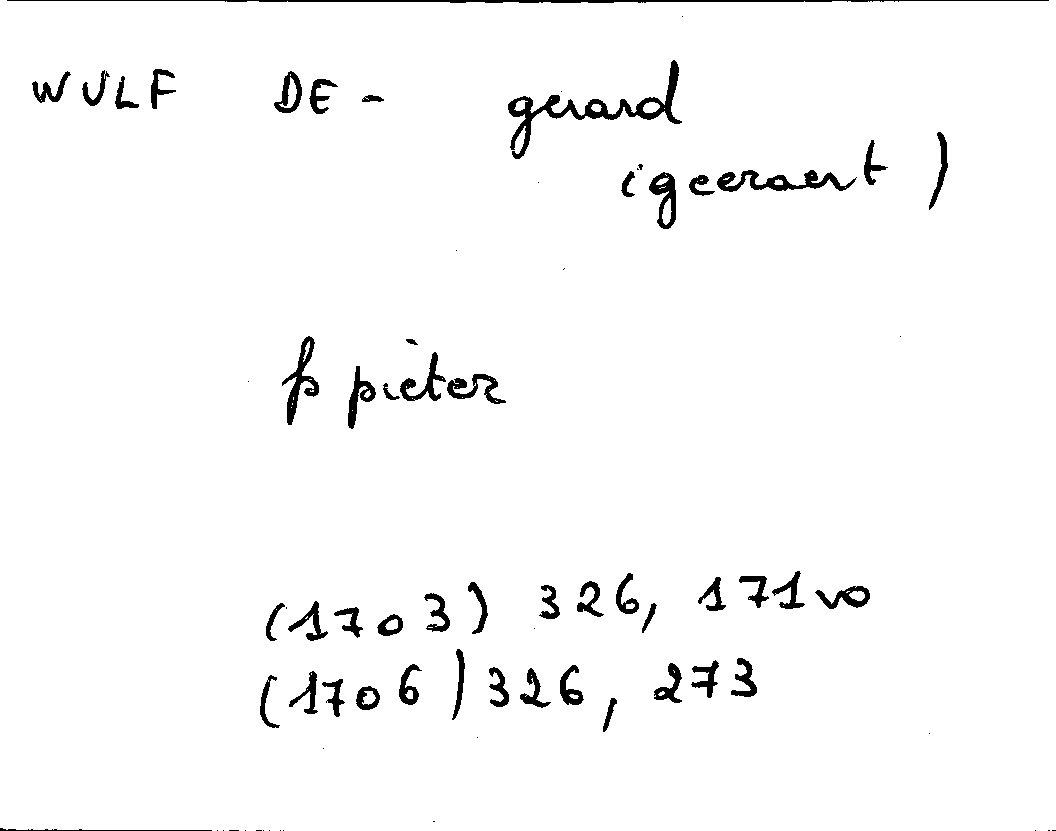 WULF DE - gerard
(geeraert)
fs pieter
(1703) 326, 171vo
(1706) 326, 273